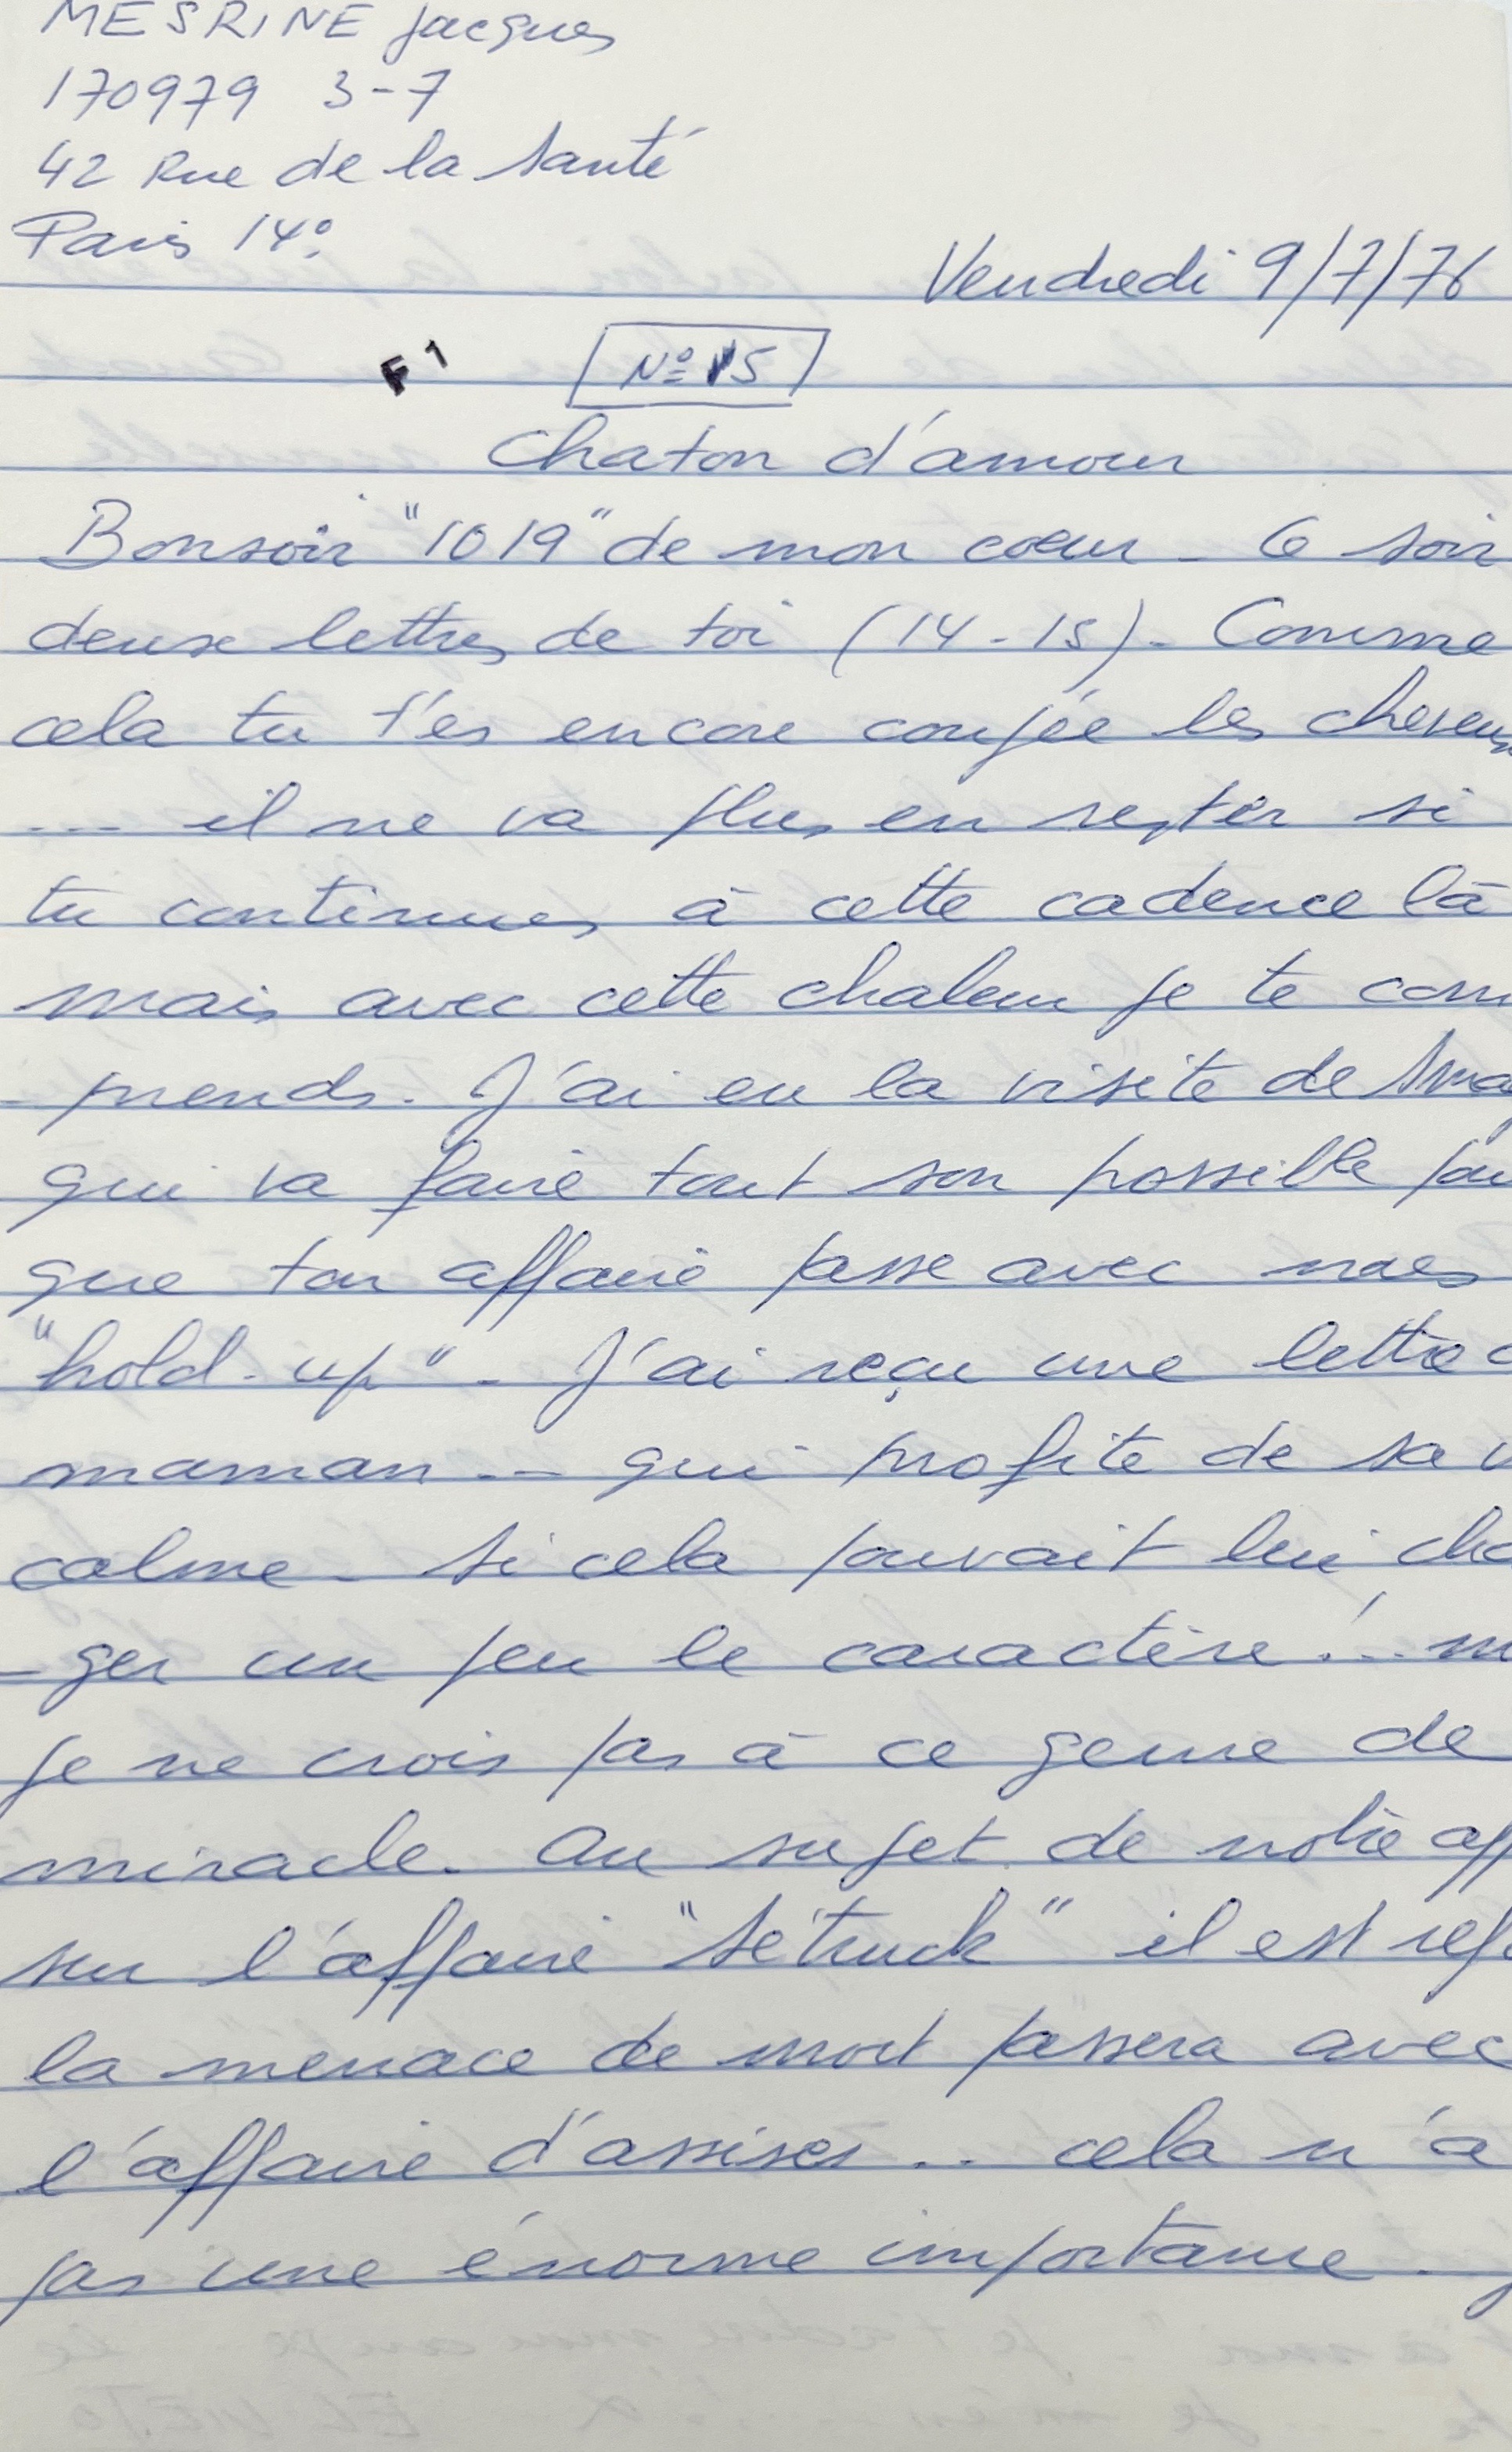 MESRINE Jacques
170979 3-7
42 Rue de la Santé
Paris 14°.
Vendredi 9/7/76
F1
N° 15
Chaton d'amour
Bonsoir "1019" de mon cœur - Ce soir
deux lettres de toi (14-15). Comme
cela tu t'es encore coupée les cheveux
--- il ne va plus en rester si
tu continues à cette cadence là
mais avec cette chaleur je te com
-prends. J'ai eu la visite de
qui va faire tout son possible
que ton affaire passe avec mes
"hold-up" - J'ai reçu une lettre
maman -- qui profite de sa
calme - si cela pouvait lui
-ger un peu le caractère! ...
je ne crois pas à ce genre de
miracle. Au sujet de notre
sur l'affaire il est
la menace de mort passera avec
l'affaire d'assises... cela n'a
pas une énorme importance.